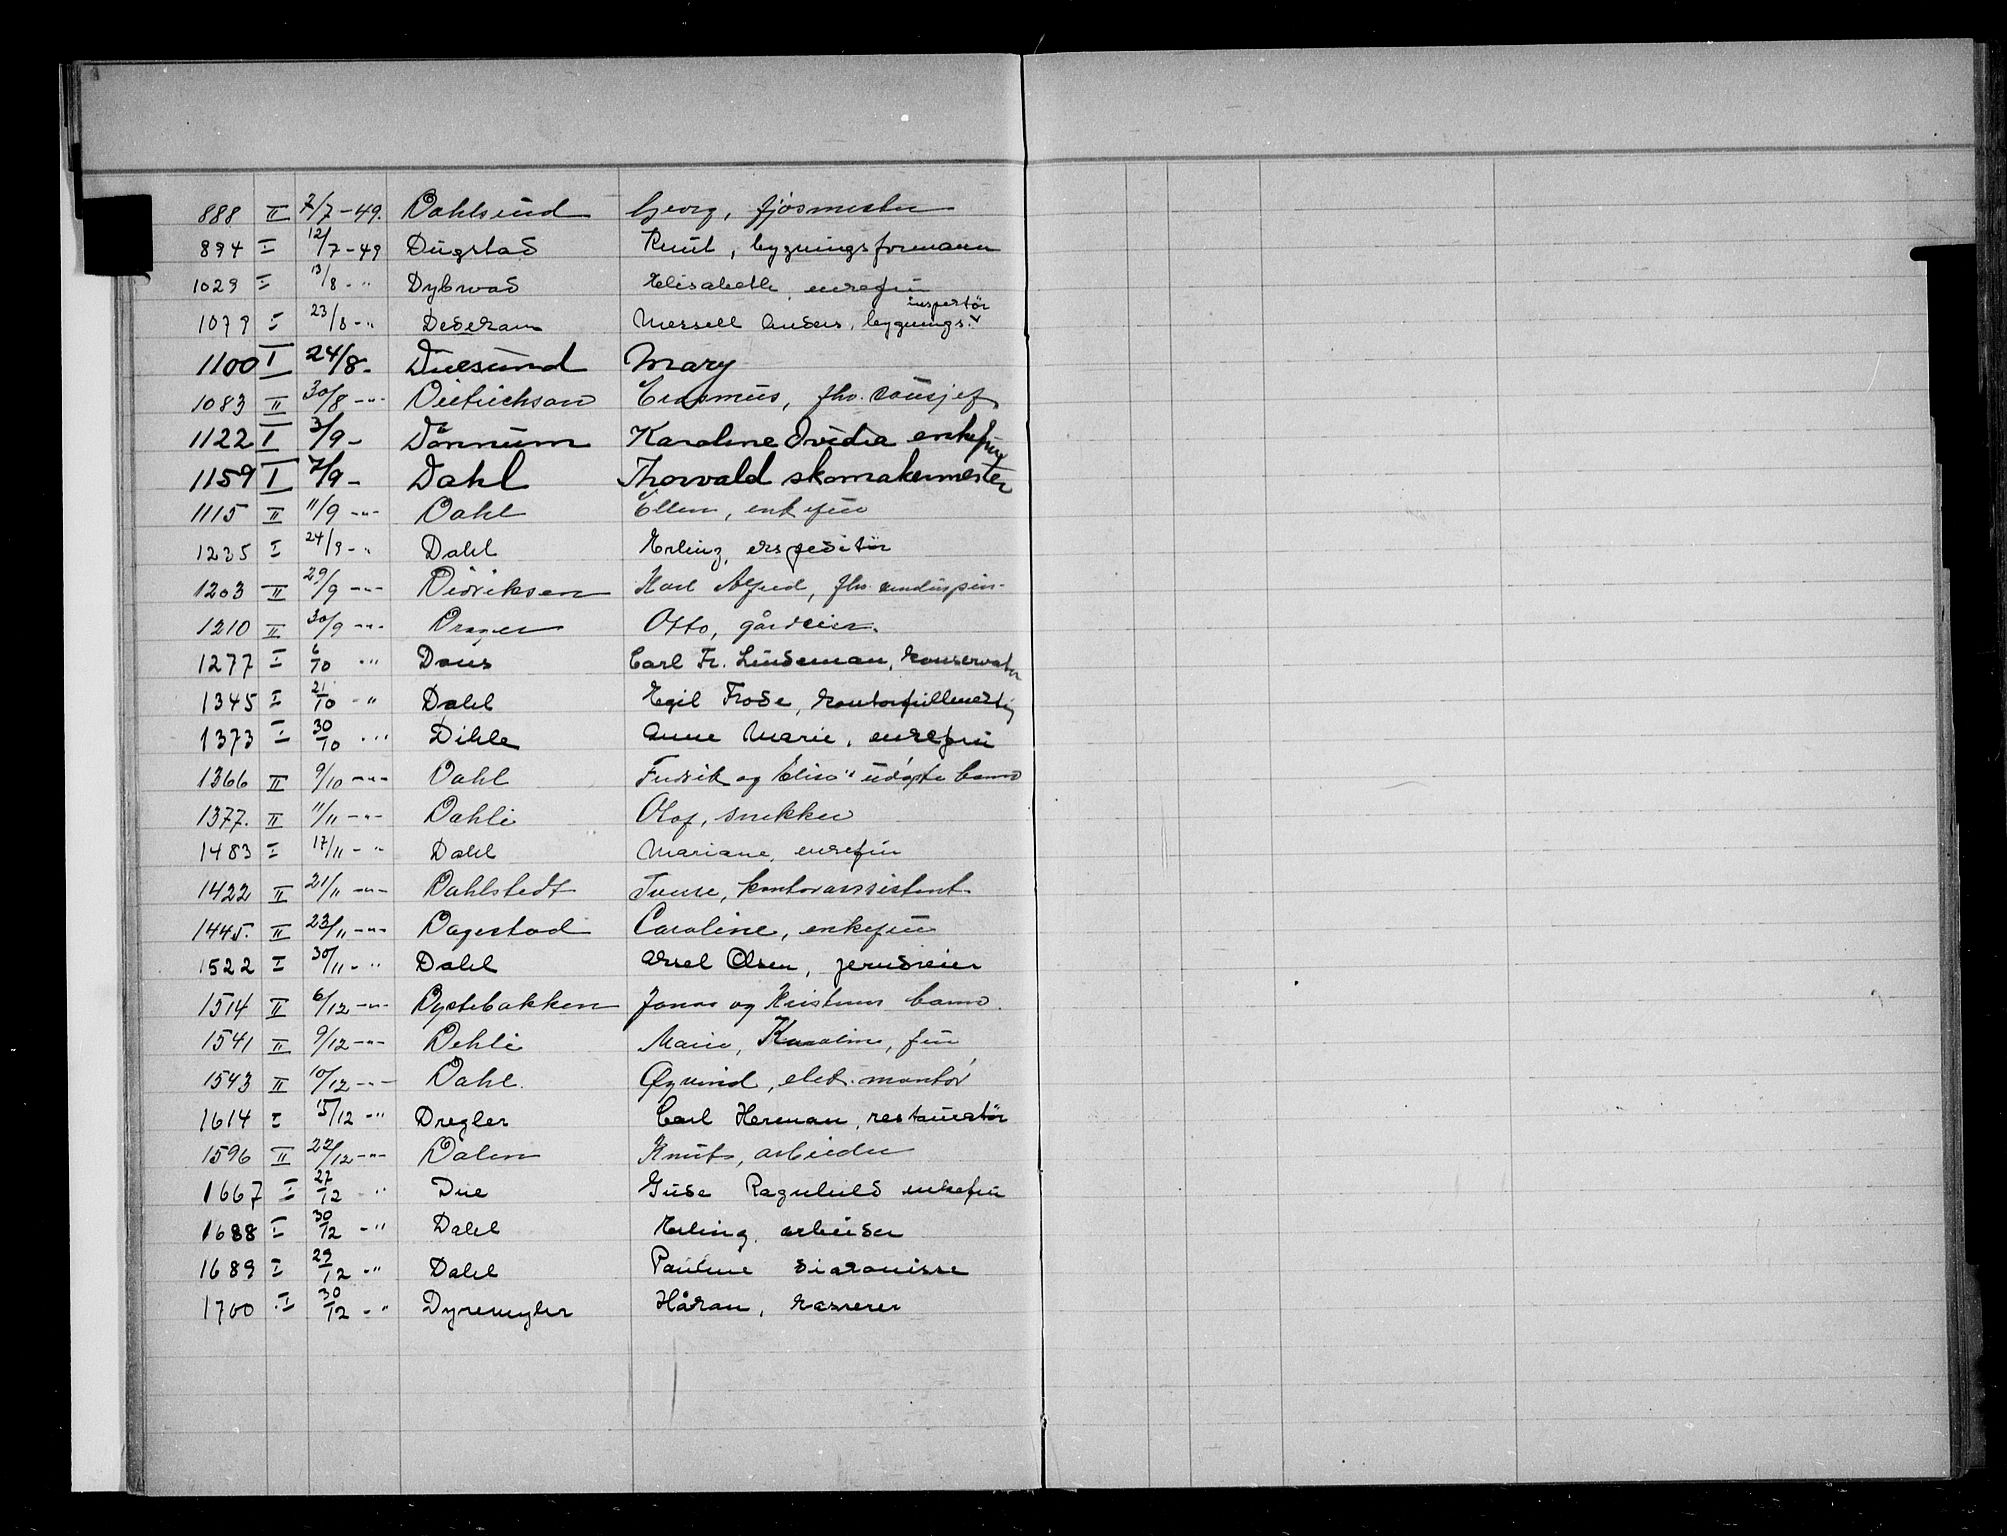 888 II 7/7-49. Dahlsund Georg, fjøsmester
894 I 12/7-49 Dugstad Knut, bygningsformann
1029 I 13/8 - " Dybwad Elisabeth enkefru
inspektør
1079 I 23/8 - " Dedekam Anders, bygnings.
1100 I 24/8- Duesund Mary
1083 II 30/8 -"- Dietrichson Erasmus, fhv.
1122 I 3/9 - Dönnum Karoline Ovidia enkefru
1159 I 7/9 - Dahl Thorvald skomakermester
1115 II 11/9 -"- Dahl Ellen, enkefru
1235 I 24/9 - " Dahl Erling, ekspeditør
1203 II 29/9 -"- Didriksen Karl Alfred, fhv.
1210 II 30/9 -"- Drager Otto, gårdeier.
1277 I 6/10 " Dous Carl Fr. Lindeman, konservator
1345 I 21/10 - " Dahl Egil Frode, kontorfullmektig
1373 I 30/10 " Dihle Anne Marie, enkefru
1366 II 9/10 -"- Dahl Fredrik og Elisa's udøpte barn
1377. II 11/11 -"- Dahli Olof, snekker
1483 I 17/11 - " Dahl Mariane, enkefru
1422 II 21/11 -"- Dahlstedt kontorassistent
1445. II 23/11 -"- Dagestad Caroline, enkefru
1522 I 30/11 - " Dahl Aksel Olsen, gårdeier
1514 II 6/12 -"- Dystebakken Jonas og Kristines barn
1541 II 9/12 -"- Dehli Marie, Karoline, fru
1543 II 10/12 -"- Dahl. Øyvind, elek. montör
1614 I 15/12 - " Dregler Carl Herman, restauratør
1596 II 22/12 -"- Dalen Knut, arbeider
1667 I 27/12 " Due Guda Ragnhild enkefru
1688 I 30/12 - " Dahl Erling, arbeider
1689 I 29/12 - " Dahl Pauline diakonisse
1700 I 30/12 - " Dyremyhr Håkan, kasserer